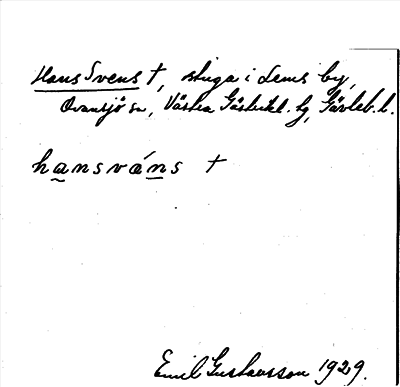 Hans Svens †, stuga i Lems by,
Ovansjö sn, Västra Gästrikl. hg, Gävleb. l.
hansváns †
Emil Gustavsson 1929.